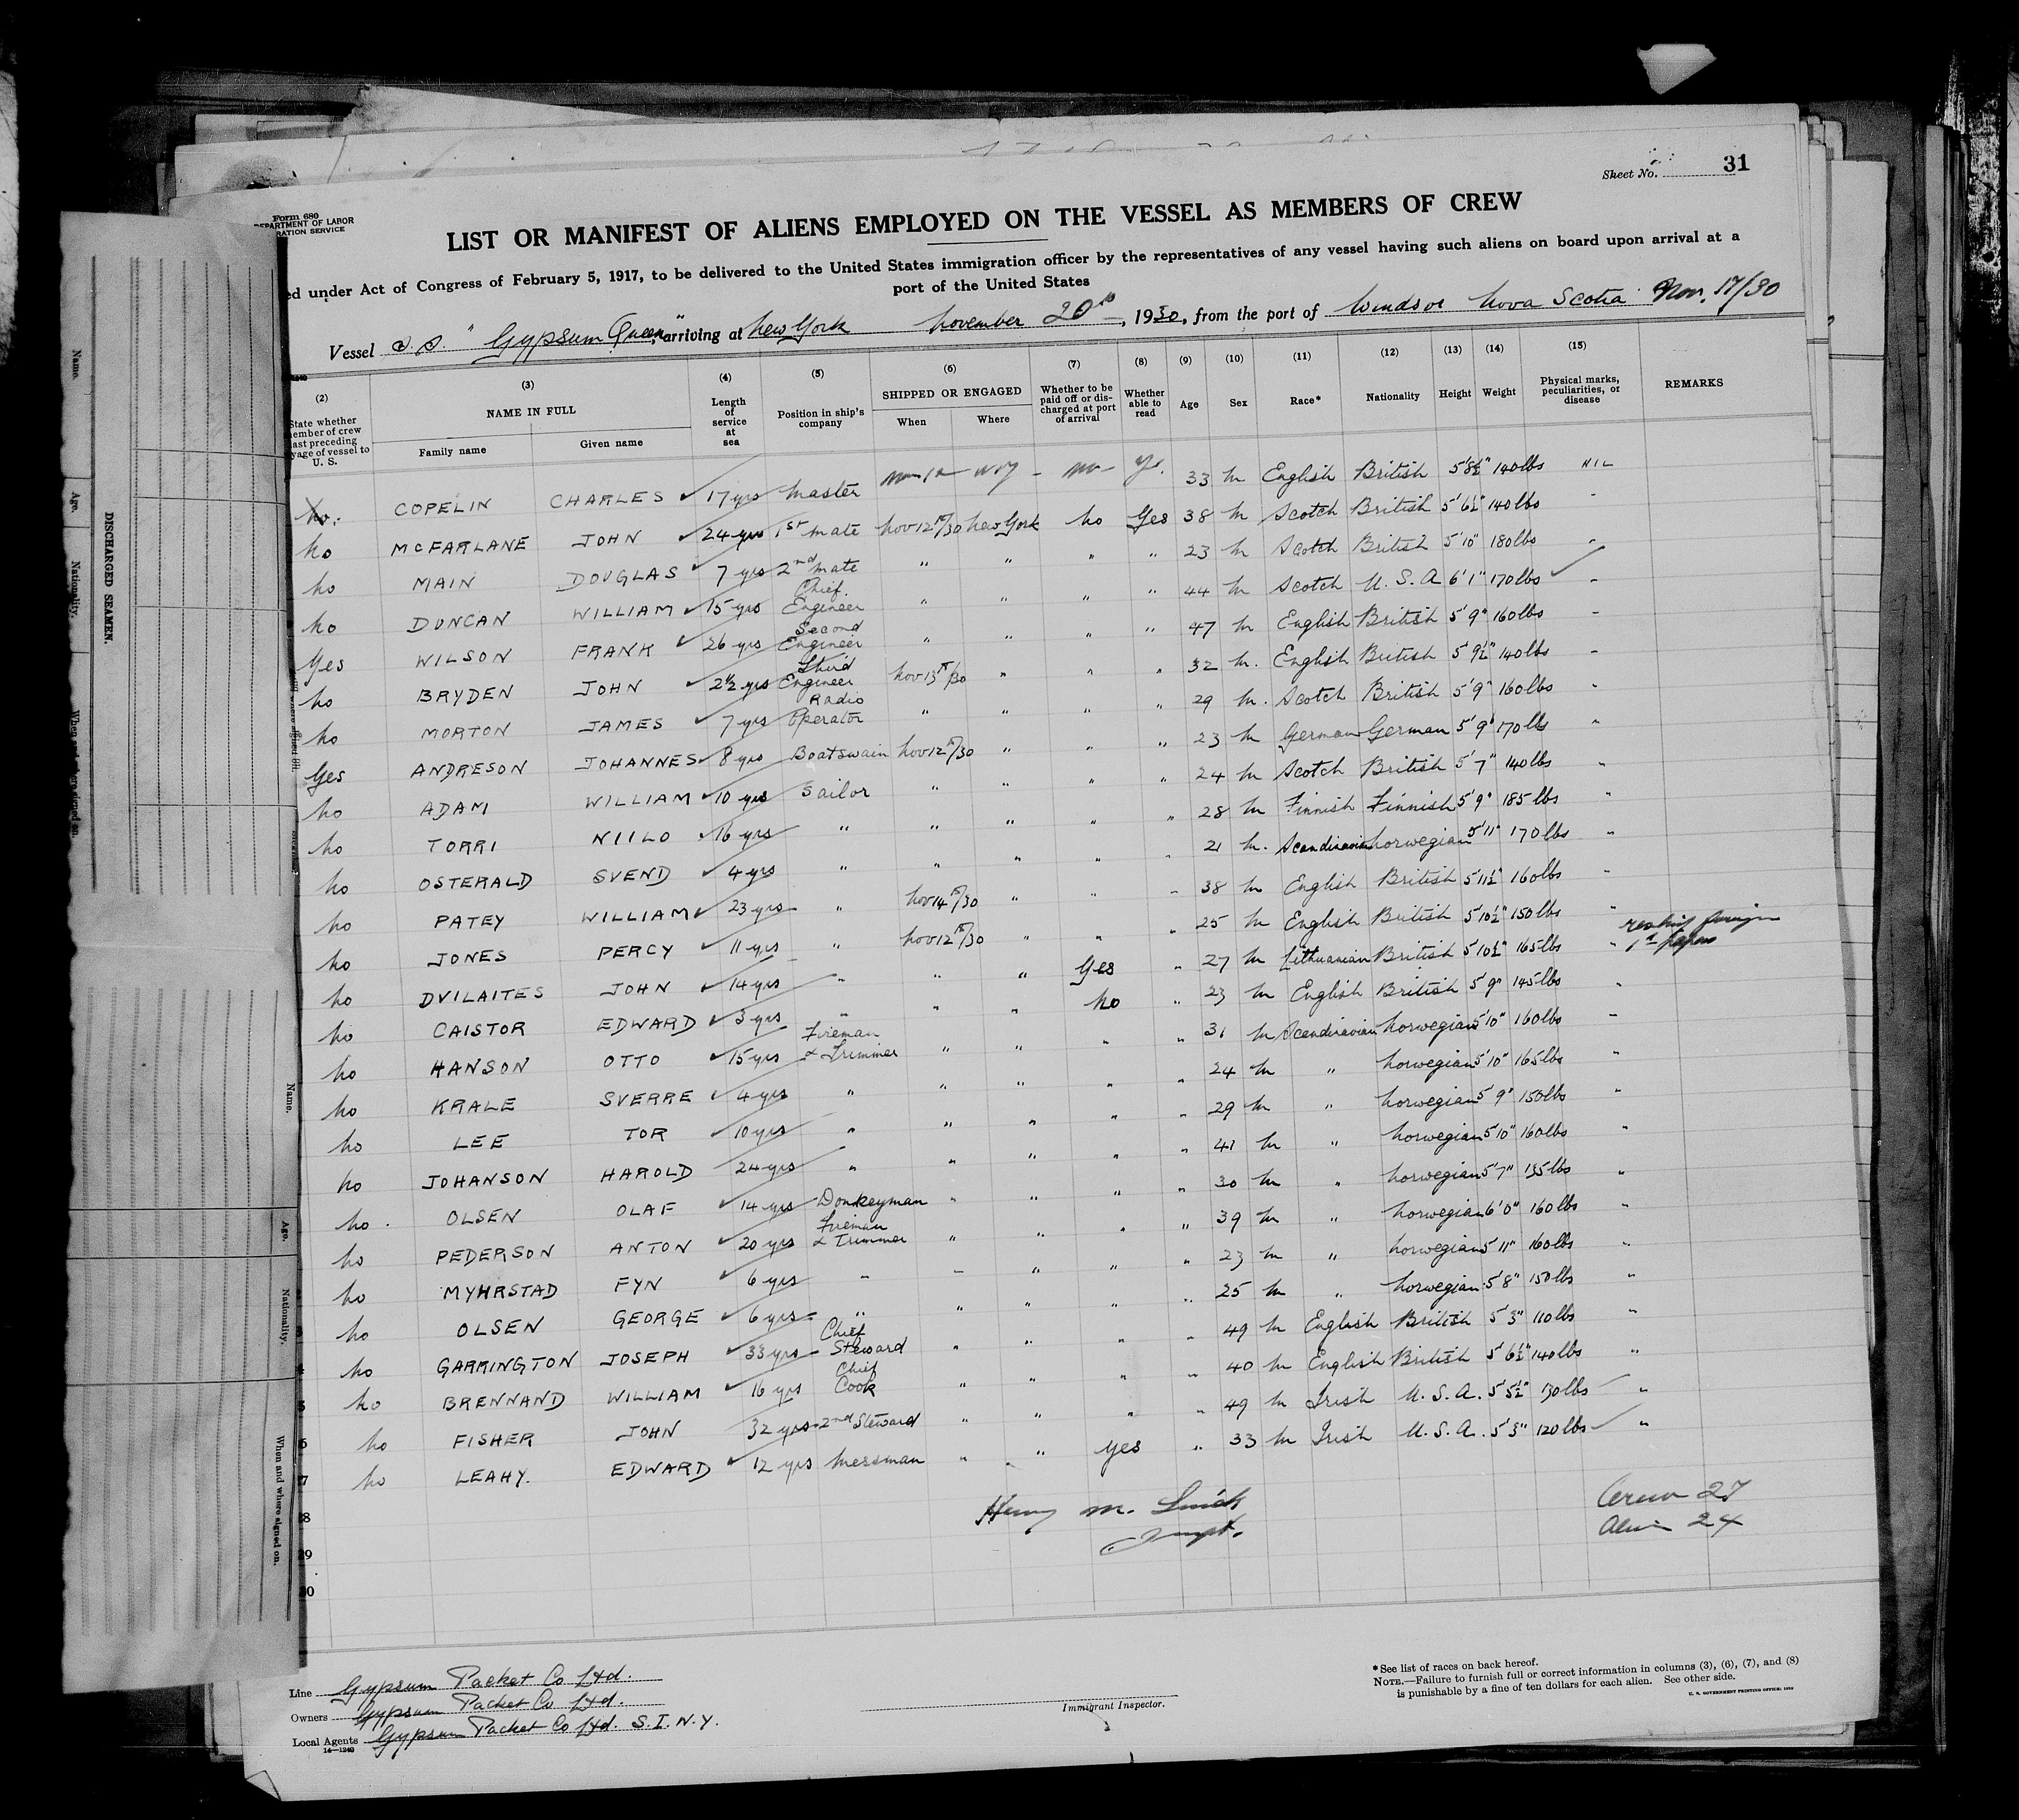 31
Sheet No.
Form 680
DEPARTMENT OF LABOR
RATION SERVICE
LIST OR MANIFEST OF ALIENS EMPLOYED ON THE VESSEL AS MEMBERS OF CREW
ed under Act of Congress of February 5, 1917, to be delivered to the United States immigration officer by the representatives of any vessel having such aliens on board upon arrival at a
port of the United States
Vessel S.S. "Gypsum Queen", arriving at New York November 20th, 1930, from the port of Windsor Nova Scotia Nov. 17/30
(2) (3) (4) (5) (6) (7) (8) (9) (10) (11) (12) (13) (14) (15)
State whether member of crew last preceding voyage of vessel to U. S.
NAME IN FULL
Family name Given name
Length of service at sea
Position in ship's company
SHIPPED OR ENGAGED
When Where
Whether to be paid off or discharged at port of arrival
Whether able to read
Age Sex Race* Nationality Height Weight
Physical marks, peculiarities, or disease
REMARKS
No. COPELIN CHARLES 17 yrs Master No Yes. 33 M English British 5'8½" 140 lbs NIL
No McFARLANE JOHN 24 yrs 1st Mate Nov 12th/30 New York No Yes 38 M Scotch British 5'6½" 140 lbs -
No MAIN DOUGLAS 7 yrs 2nd Mate " " " " 23 M Scotch British 5'10" 180 lbs -
No DUNCAN WILLIAM 15 yrs Chief Engineer " " " " 44 M Scotch U.S.A 6'1" 170 lbs -
Yes WILSON FRANK 26 yrs Second Engineer " " " " 47 M English British 5'9" 160 lbs -
No BRYDEN JOHN 2½ yrs Third Engineer Nov 13th/30 " " " 32 M. English British 5'9½" 140 lbs -
No MORTON JAMES 7 yrs Radio Operator " " " " 29 M. Scotch British 5'9" 160 lbs "
Yes ANDRESON JOHANNES 8 yrs Boatswain Nov 12th/30 " " " 23 M German German 5'9" 170 lbs "
No ADAM WILLIAM 10 yrs Sailor " " " " 24 M Scotch British 5'7" 140 lbs "
No TORRI NIILO 16 yrs " " " " " 28 M Finnish Finnish 5'9" 185 lbs "
No OSTERALD SVEND 4 yrs " " " " " 21 M. Scandinavian Norwegian 5'11" 170 lbs "
No PATEY WILLIAM 23 yrs " Nov 14th/30 " " " 38 M English British 5'11½" 160 lbs "
No JONES PERCY 11 yrs " Nov 12th/30 " " " 25 M English British 5'10½" 150 lbs "
No DVILAITES JOHN 14 yrs " " " Yes " 27 M Lithuanian British 5'10½" 165 lbs " reship foreign 1st papers
No CAISTOR EDWARD 3 yrs " " " No " 23 M English British 5'9" 145 lbs "
No HANSON OTTO 15 yrs Fireman & Trimmer " " " " 31 M Scandinavian Norwegian 5'10" 160 lbs "
No KRALE SVERRE 4 yrs " " " " " 24 M " Norwegian 5'10" 165 lbs "
No LEE TOR 10 yrs " " " " " 29 M " Norwegian 5'9" 150 lbs "
No JOHANSON HAROLD 24 yrs " " " " " 41 M " Norwegian 5'10" 160 lbs "
No. OLSEN OLAF 14 yrs Donkeyman " " " " 30 M " Norwegian 5'7" 135 lbs "
No PEDERSON ANTON 20 yrs Fireman & Trimmer " " " " 39 M " Norwegian 6'0" 160 lbs "
No MYHRSTAD FYN 6 yrs " " " " " 23 M " Norwegian 5'11" 160 lbs "
No OLSEN GEORGE 6 yrs " " " " " 25 M " Norwegian 5'8" 150 lbs "
No GARRINGTON JOSEPH 33 yrs Chief Steward " " " " 49 M English British 5'3" 110 lbs "
No BRENNAND WILLIAM 16 yrs Chief Cook " " " " 40 M English British 5'6½" 140 lbs "
No FISHER JOHN 32 yrs 2nd Steward " " " " 49 M Irish U.S.A. 5'5½" 130 lbs "
No LEAHY. EDWARD 12 yrs Messman " " Yes " 33 M Irish U.S.A. 5'3" 120 lbs "
Henry M. Smich
Inspt.
Crew 27
Alien 24
29
30
Line Gypsum Packet Co Ltd.
Owners Gypsum Packet Co. Ltd.
Local Agents Gypsum Packet Co Ltd. S.I. N.Y.
14—1240
Immigrant Inspector.
*See list of races on back hereof.
NOTE.—Failure to furnish full or correct information in columns (3), (6), (7), and (8)
is punishable by a fine of ten dollars for each alien. See other side.
U. S. GOVERNMENT PRINTING OFFICE: 1930
DISCHARGED SEAMEN.
Name.
Age.
Nationality.
When and where signed on.
Name.
Age.
Nationality.
When and where signed on.